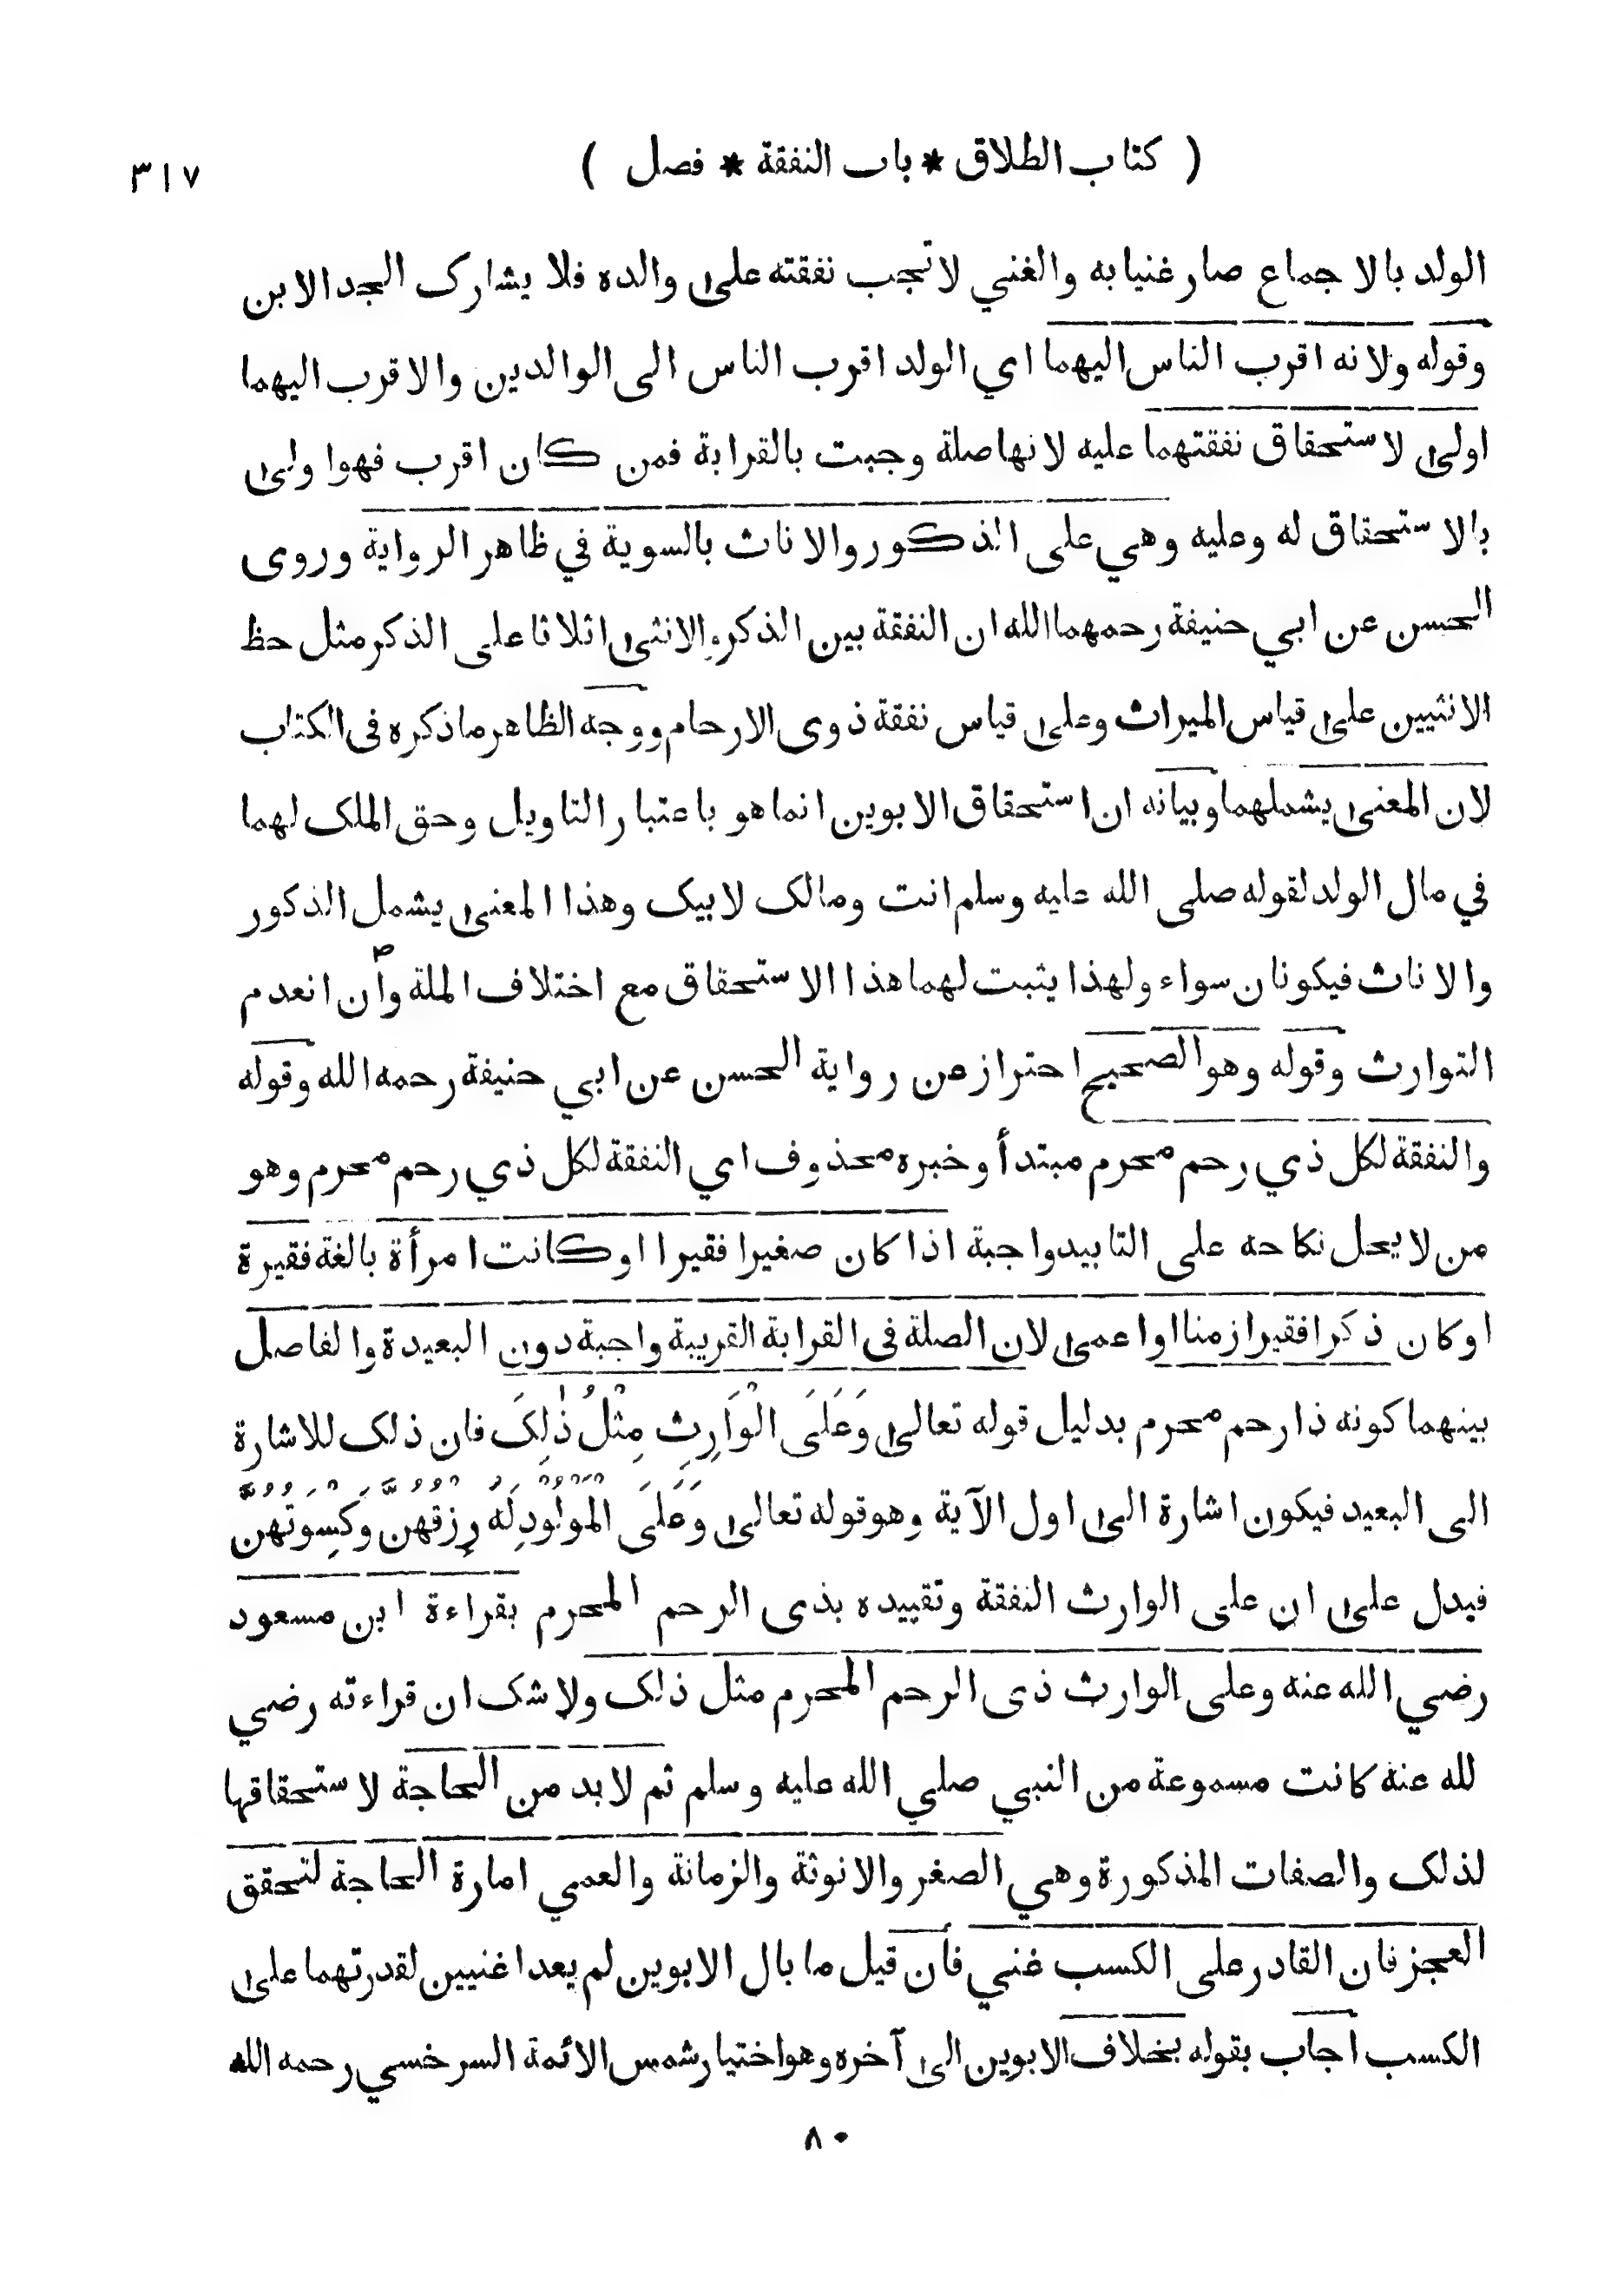 ( كتاب الطلاق * باب النفقة * فصل )
٣١٧
الولد بالاجماع صار غنيا به والغني لا تجب نفقته على والده فلا يشارك الجد الابن
وقوله ولانه اقرب الناس اليهما اي الولد اقرب الناس الى الوالدين والاقرب اليهما
اولى لاستحقاق نفقتهما عليه لانها صلة وجبت بالقرابة فمن كان اقرب فهو اولى
بالاستحقاق له وعليه وهي على الذكور والاناث بالسوية في ظاهر الرواية وروى
الحسن عن ابي حنيفة رحمهما الله ان النفقة بين الذكر والانثى اثلاثا على الذكر مثل حظ
الانثيين على قياس الميراث وعلى قياس نفقة ذوى الارحام ووجه الظاهر ما ذكره فى الكتاب
لان المعنى يشملهما وبيانه ان استحقاق الابوين انما هو باعتبار التاويل وحق الملك لهما
في مال الولد لقوله صلى الله عليه وسلم انت ومالك لابيك وهذا المعنى يشمل الذكور
والاناث فيكونان سواء ولهذا يثبت لهما هذا الاستحقاق مع اختلاف الملة وأن انعدم
التوارث وقوله وهو الصحيح احتراز عن رواية الحسن عن ابي حنيفة رحمه الله وقوله
والنفقة لكل ذي رحم محرم مبتدأ وخبره محذوف اي النفقة لكل ذي رحم محرم وهو
من لا يحل نكاحه على التابيد واجبة اذا كان صغيرا فقيرا او كانت امرأة بالغة فقيرة
او كان ذكرا فقيرا زمنا او اعمى لان الصلة فى القرابة القريبة واجبة دون البعيدة والفاصل
بينهما كونه ذا رحم محرم بدليل قوله تعالى وَعَلَى الْوَارِثِ مِثْلُ ذٰلِكَ فان ذلك للاشارة
الى البعيد فيكون اشارة الى اول الآية وهو قوله تعالى وَعَلَى الْمَوْلُوْدِ لَهُ رِزْقُهُنَّ وَكِسْوَتُهُنَّ
فيدل على ان على الوارث النفقة وتقييده بذى الرحم المحرم بقراءة ابن مسعود
رضي الله عنه وعلى الوارث ذى الرحم المحرم مثل ذلك ولاشك ان قراءته رضي
لله عنه كانت مسموعة من النبي صلي الله عليه وسلم ثم لا بد من الحاجة لاستحقاقها
لذلك والصفات المذكورة وهي الصغر والانوثة والزمانة والعمي امارة الحاجة لتحقق
العجز فان القادر على الكسب غني فأن قيل ما بال الابوين لم يعدا غنيين لقدرتهما على
الكسب اجاب بقوله بخلاف الابوين الى آخره وهو اختيار شمس الائمة السرخسي رحمه الله
٨٠